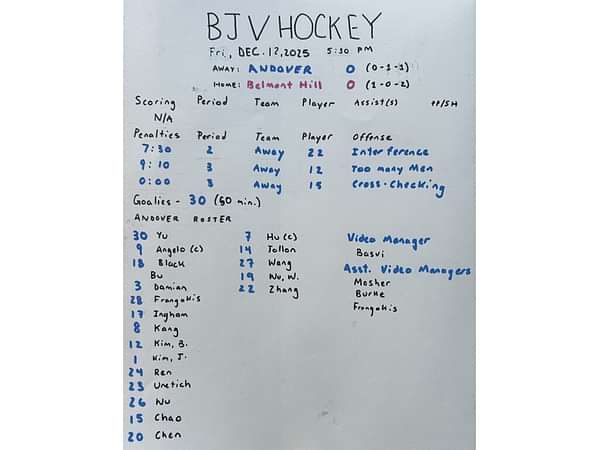 BJV HOCKEY
Fri., DEC. 12, 2025 5:30 PM
AWAY: ANDOVER 0 (0-1-1)
HOME: Belmont Hill 0 (1-0-2)
Scoring Period Team Player Assist(s) PP/SH
N/A
Penalties Period Team Player Offense
7:30 2 Away 22 Interference
9:10 3 Away 12 Too many Men
0:00 3 Away 15 Cross-Checking
Goalies - 30 (60 min.)
ANDOVER ROSTER
30 Yu
9 Angelo (c)
18 Black
Bu
3 Damian
28 Frangakis
17 Ingham
8 Kang
12 Kim, B.
1 Kim, J.
24 Ren
23 Uretich
26 Wu
15 Chao
20 Chen
7 Hu (c)
14 Tallon
27 Wang
19 Wu, W.
22 Zhang
Video Manager
Basvi
Asst. Video Managers
Mosher
Burke
Frangakis